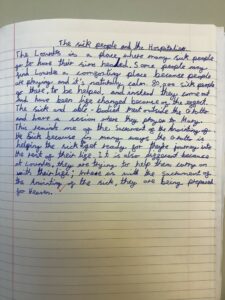 The sick people and the Hospitalier.
The Lourdes is a place where many sick people
go to have their sins healed. Some people may
find Lourdes a comforting place because people
are praying and it's naturally calm. So, some sick people
go there to be helped, and instead they come out
and have been like changed because of the
The sick and able-bodied meet outside the Grotto
and have a service where they pray to Mary.
This reminds me of the Sacrament of the Anointing of
the Sick because in many ways the
helping the sick get ready for they're journey into
the rest of their life. It is also different because
at Lourdes, they are trying to help them carry on
with their life; where as with the Sacrament of
the Anointing of the sick, they are being prepared
for Heaven.